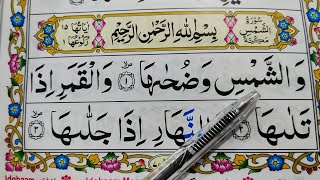 سُورَةُ الشَّمْسِ مَكِّيَّةٌ
بِسْمِ اللّٰهِ الرَّحْمٰنِ الرَّحِيْمِ
اٰيَاتُهَا ١٥ رُكُوْعُهَا ١
وَالشَّمْسِ وَضُحٰىهَا ۝١ وَالْقَمَرِ اِذَا
تَلٰىهَا ۝٢ النَّهَارِ اِذَا جَلّٰىهَا ۝٣